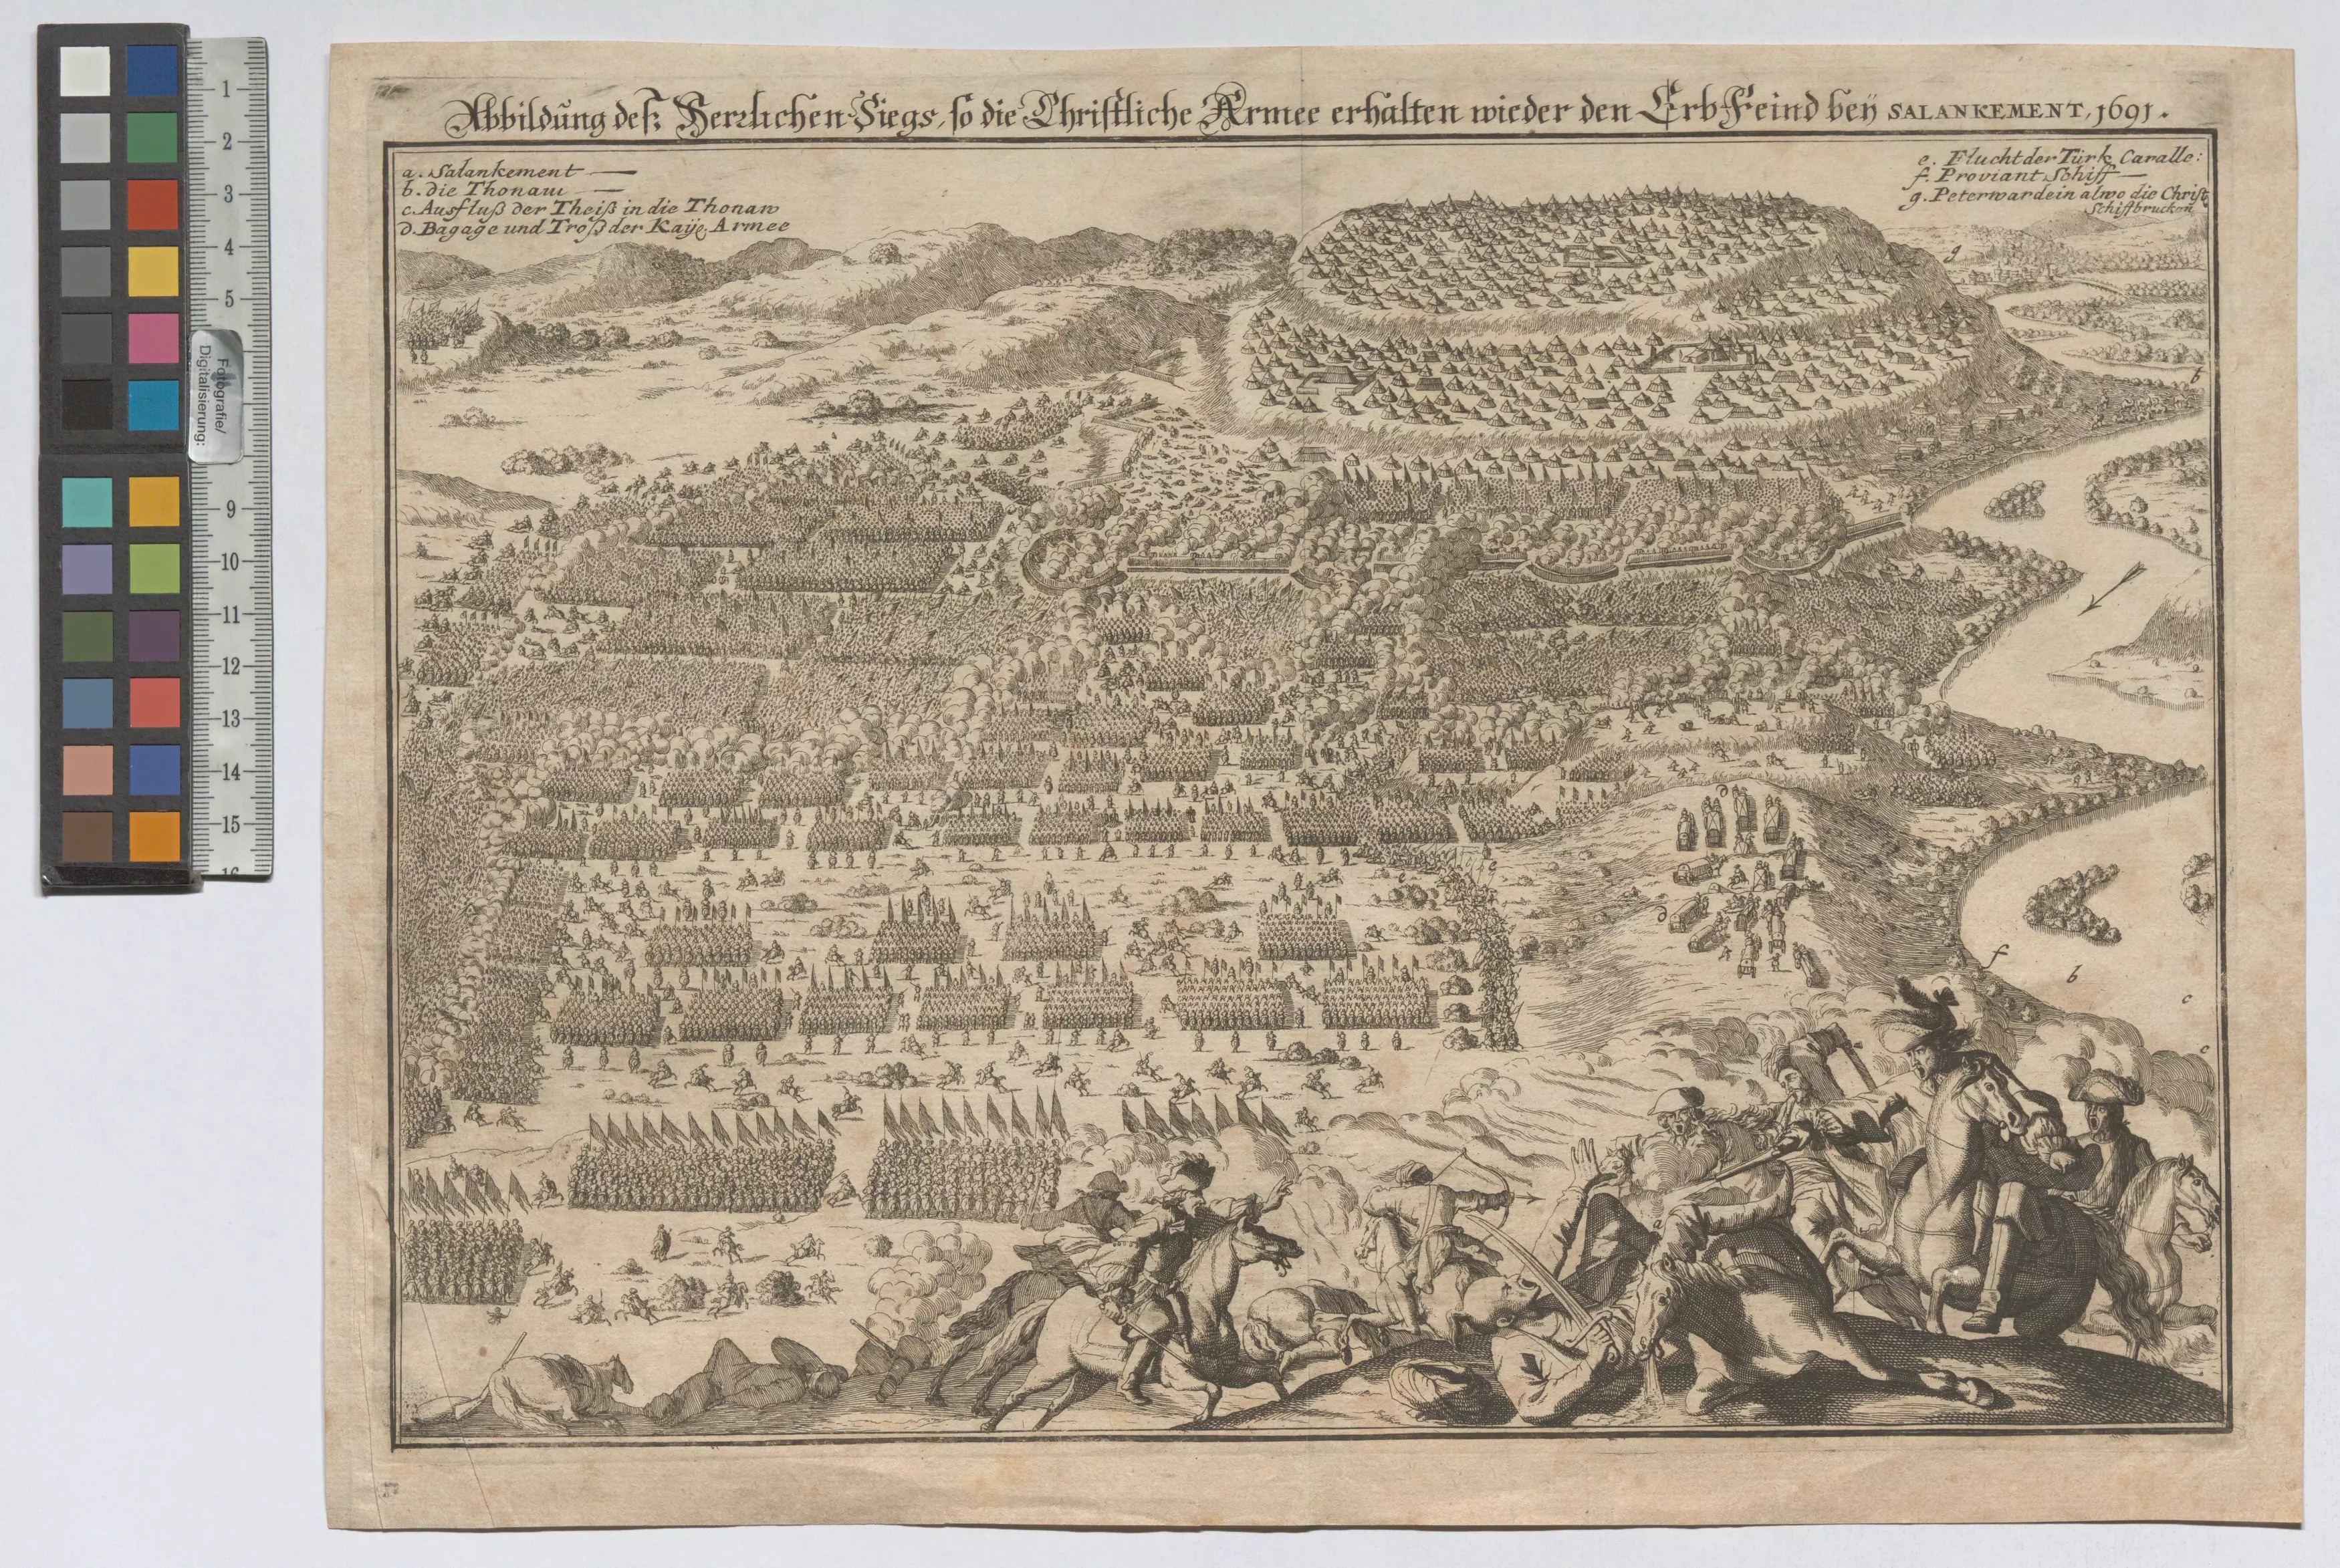 Abbildung deß Herrlichen Siegs, so die Christliche Armee erhalten wieder den Erb Feind beÿ SALANKEMENT, 1691.
a. Salankement
b. die Thonaw
c. Ausfluß der Theiß in die Thonaw
d. Bagage und Troß der Kaÿs. Armee
e. Flucht der Türk. Cavalle:
f. Proviant Schiff
g. Peterwardein alwo die Christ
Schiffbrucken
g
b
d
e
e
d
f
b
c
c
a
1
2
3
4
5
9
10
11
12
13
14
15
16
Fotografie/
Digitalisierung: